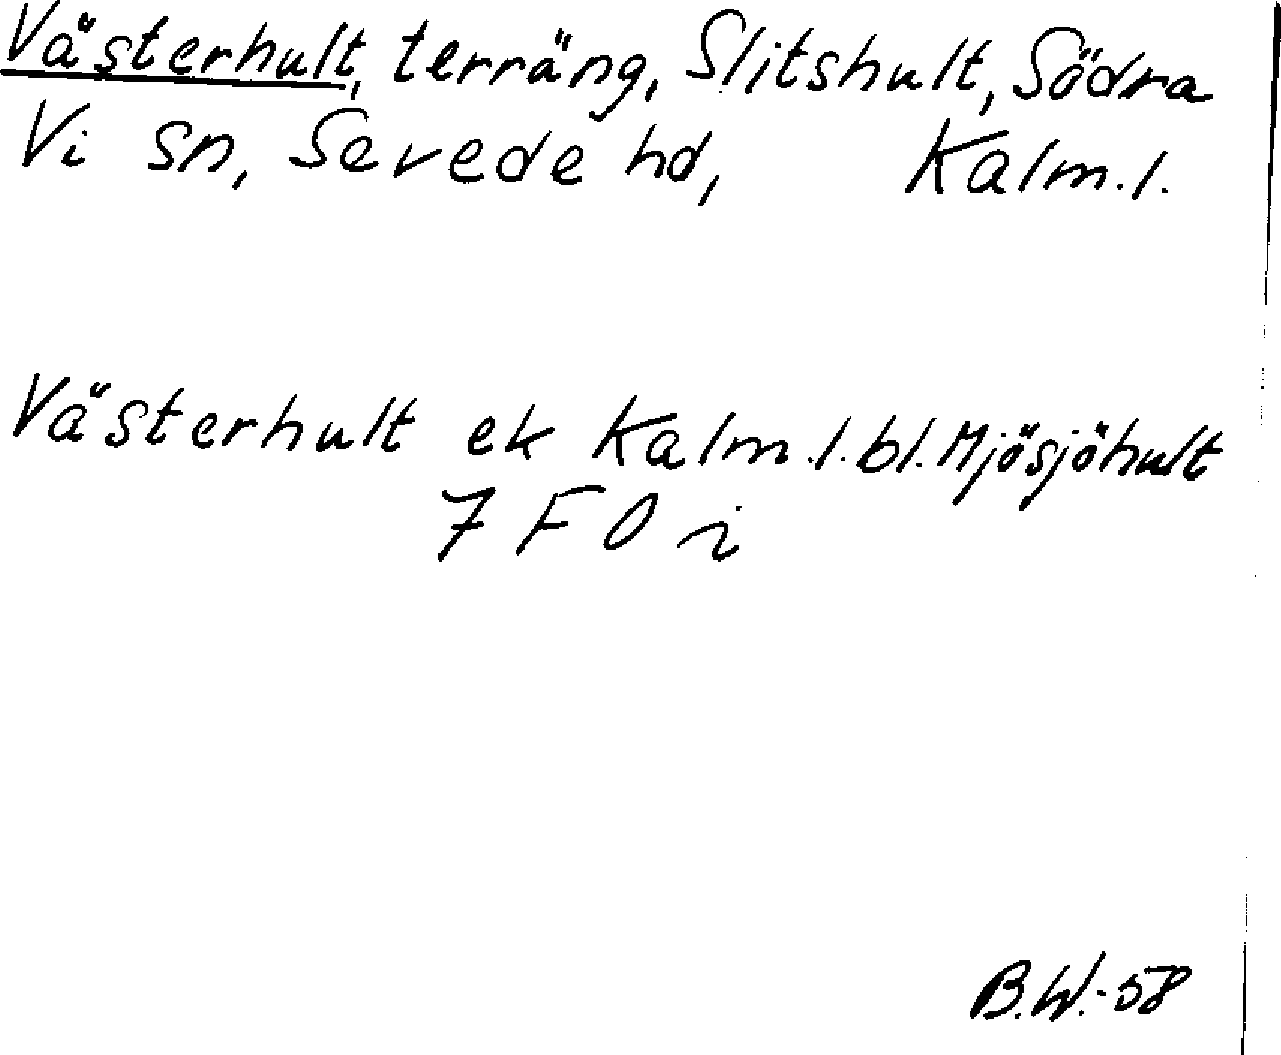 Västerhult, terräng, Slitshult, Södra
Vi sn, Sevede hd, Kalm.l.
Västerhult ek Kalm.l.bl.Mjösjöhult
7 F 0 i
B.W.-58